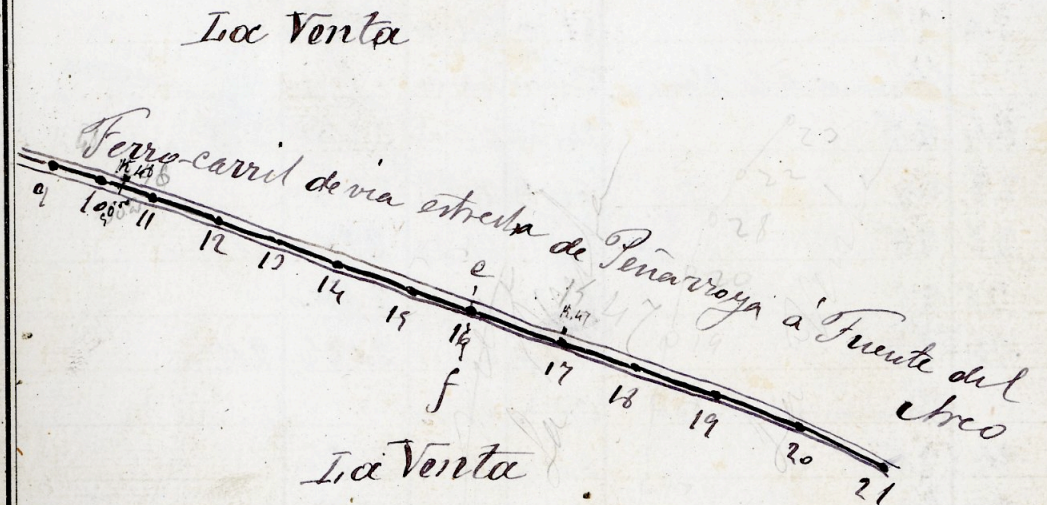 La Venta
Ferro-carril de via estrecha de Peñarroya á Fuente del
Arco
K.48
e
K.47
9 10 11 12 13 14 15 16 17 18 19 20 21
f
La Venta